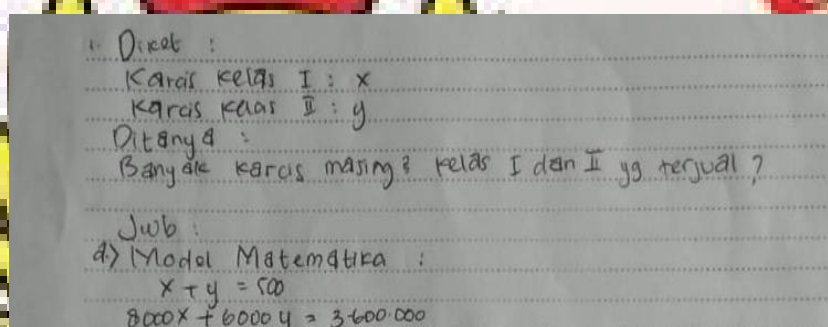 1. Diket :
Karcis kelas I : x
Karcis kelas II : y
Ditanya :
Banyak karcis masing² kelas I dan II yg terjual ?
Jwb :
a.) Model Matematika :
x + y = 500
8000x + 6000y = 3.600.000